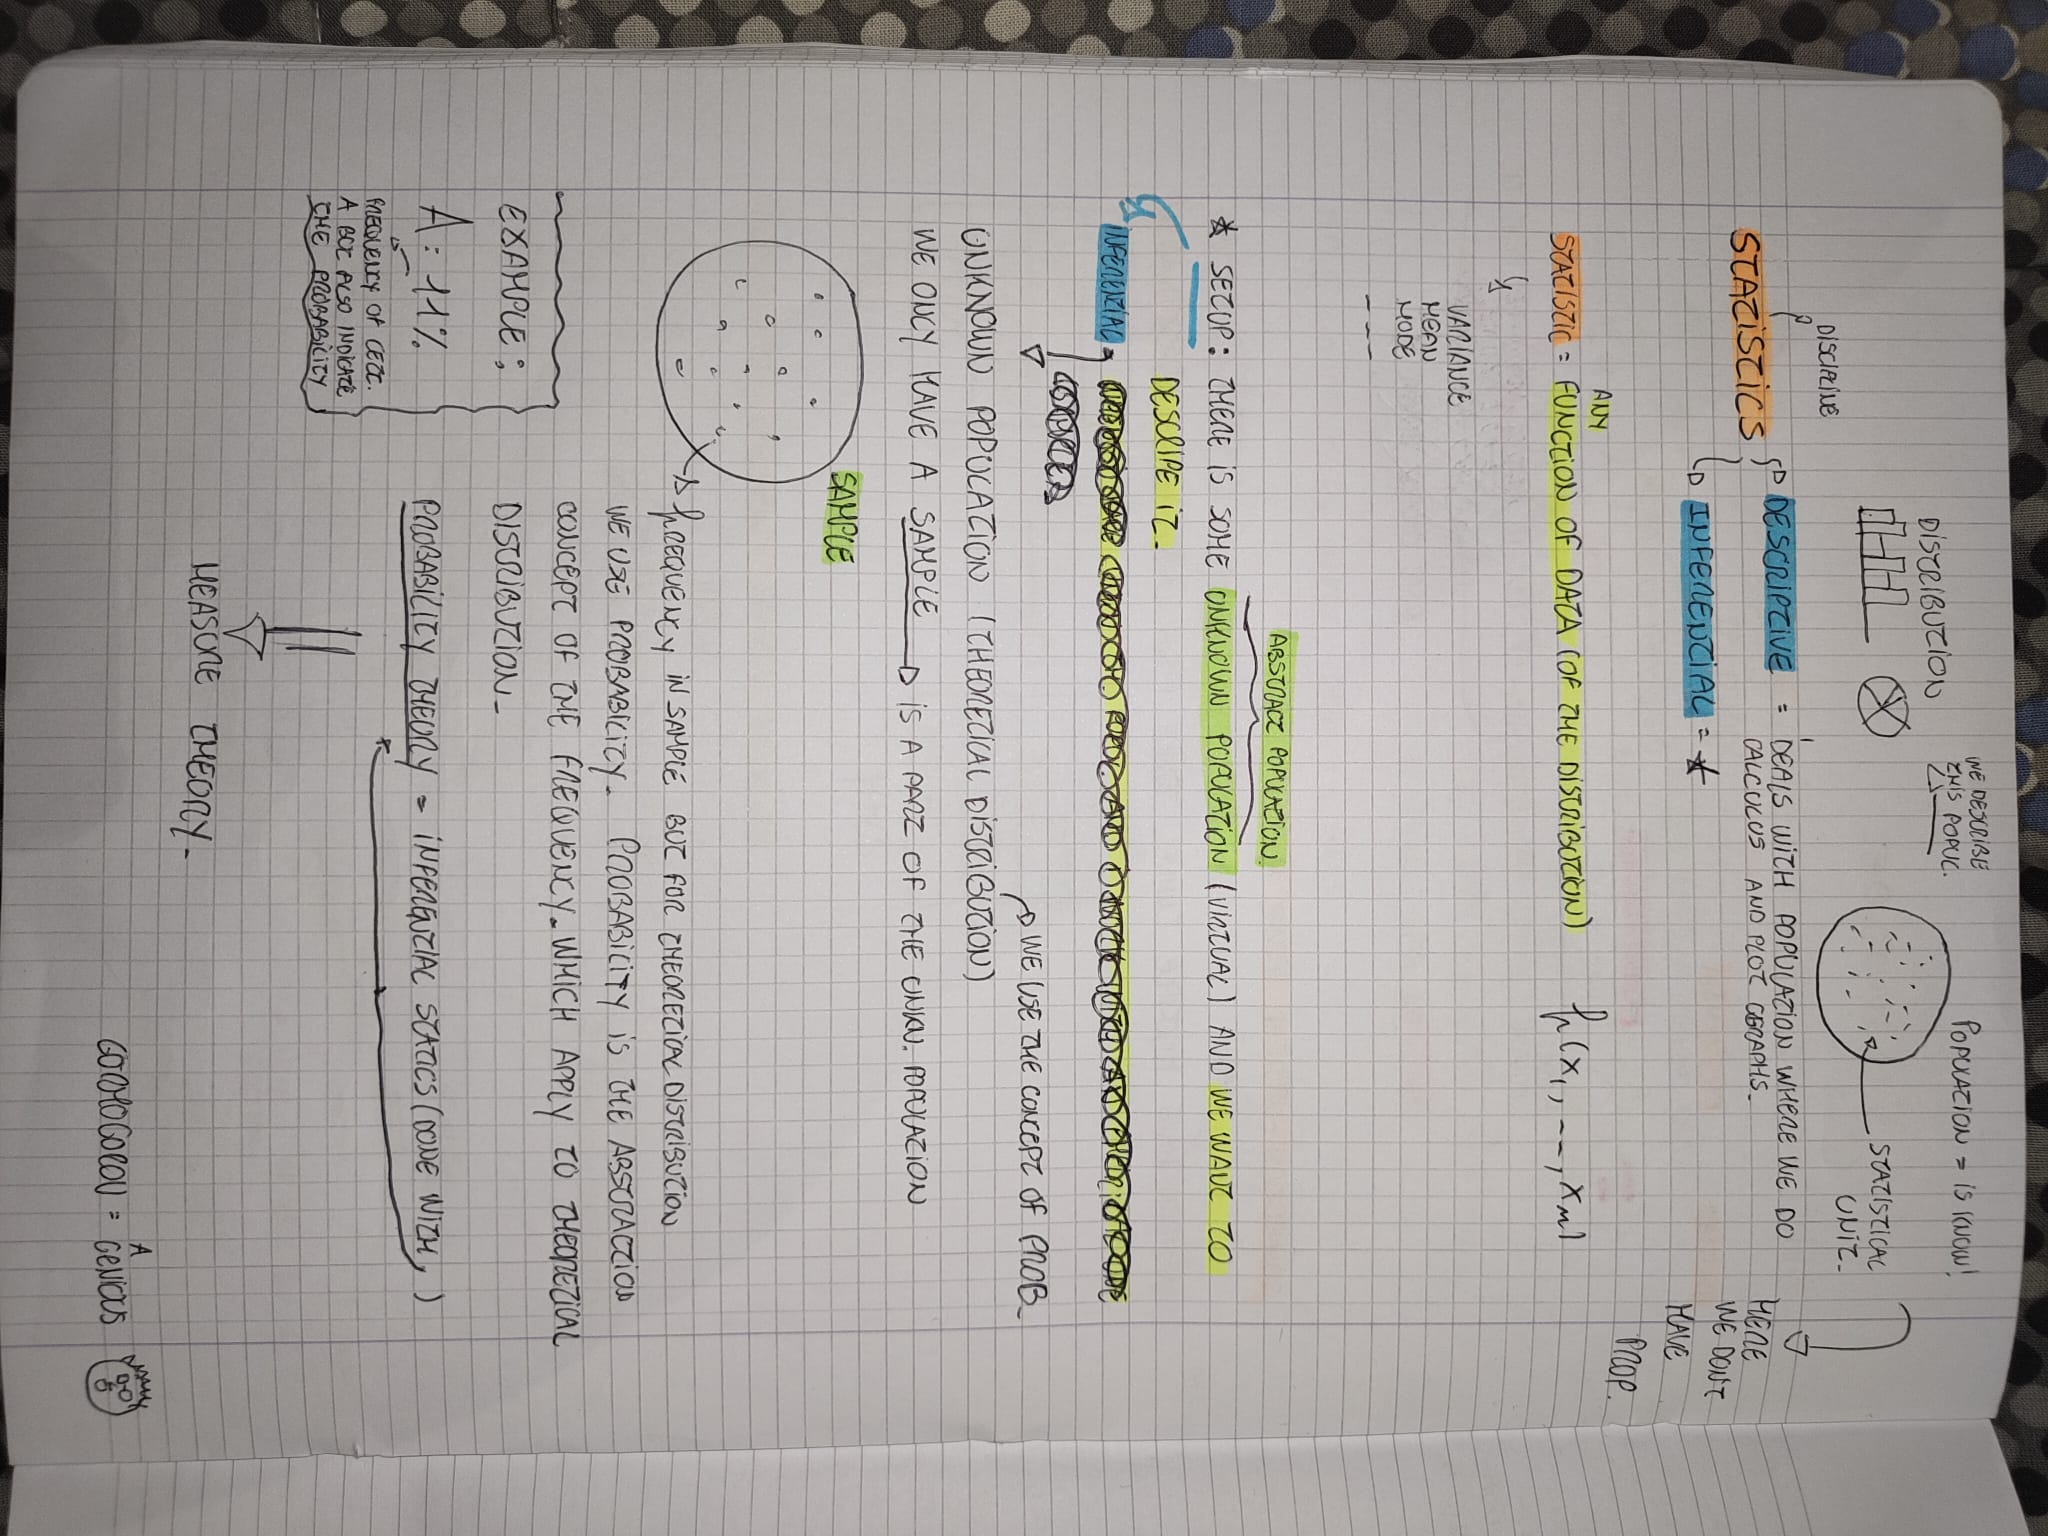 WE DESCRIBE
THIS POPUL.
POPULATION = IS KNOW!
DISTRIBUTION
STATISTICAL
UNIT.
DISCIPLINE
STATISTICS
DESCRIPTIVE = DEALS WITH POPULATION WHERE WE DO
CALCULUS AND PLOT GRAPHS.
INFERENTIAL = *
HERE
WE DON'T
HAVE
PROP.
ANY
STATISTIC = FUNCTION OF DATA (OF THE DISTRIBUTION) f(x1, --, xn)
VARIANCE
MEAN
MODE
---
ABSTRACT POPULATION.
* SETUP: THERE IS SOME UNKNOWN POPULATION (VIRTUAL) AND WE WANT TO
DESCRIPE IT.
INFERENTIAL
WE USE THE CONCEPT OF PROB.
UNKNOWN POPULATION (THEORETICAL DISTRIBUTION)
WE ONLY HAVE A SAMPLE IS A PART OF THE UNKN. POPULATION
SAMPLE
FREQUENCY IN SAMPLE BUT FOR THEORETICAL DISTRIBUTION
WE USE PROBABILITY. PROBABILITY IS THE ABSTRACTION
CONCEPT OF THE FREQUENCY. WHICH APPLY TO THEORETICAL
DISTRIBUTION.
EXAMPLE:
A: 11%
FREQUENCY OF LETT.
A BUT ALSO INDICATE
THE PROBABILITY
PROBABILITY THEORY = INFERENTIAL STATICS (DONE WITH )
MEASURE THEORY.
A
= GENIOUS